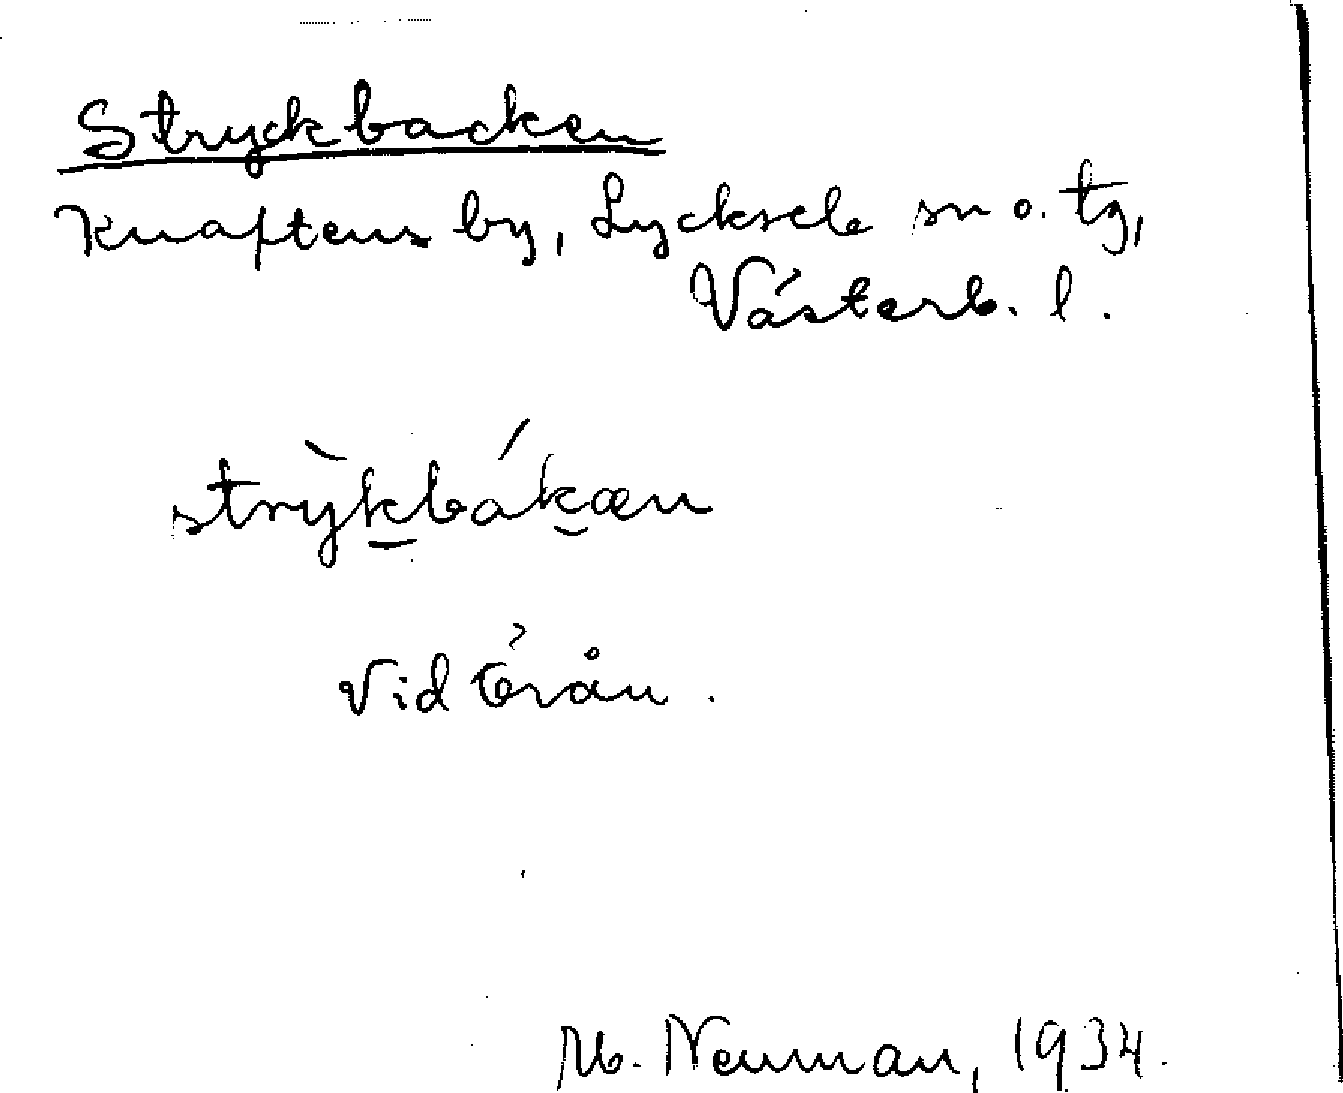 Stryckbacken
Knaftens by, Lycksele sn o. tg,
Västerb. l.
strỳk̠bák̠æn
Vid Öråu.
M. Neuman, 1934.